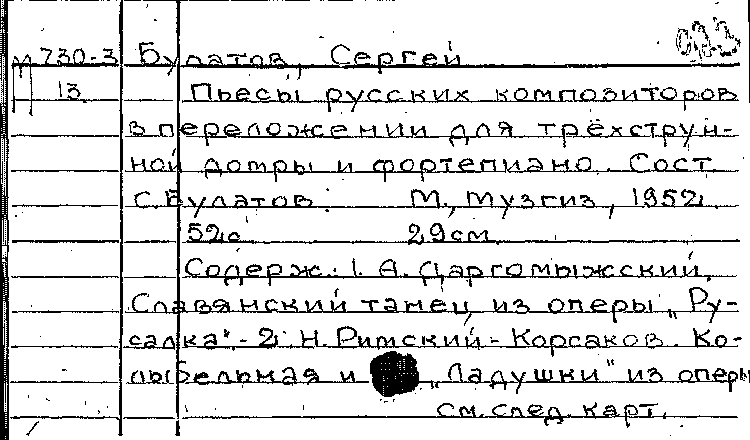 М 730-3 Булатов, Сергей
13 Пьесы русских композиторов
в переложении для трёхструн-
ной домры и фортепиано. Сост.
С. Булатов. М., Музгиз, 1952.
52с. 29см.
Содерж.: 1. А. Даргомыжский.
Славянский танец из оперы „Ру-
салка". - 2. Н. Римский-Корсаков. Ко-
лыбельная и „Ладушки" из оперы
см. след. карт.